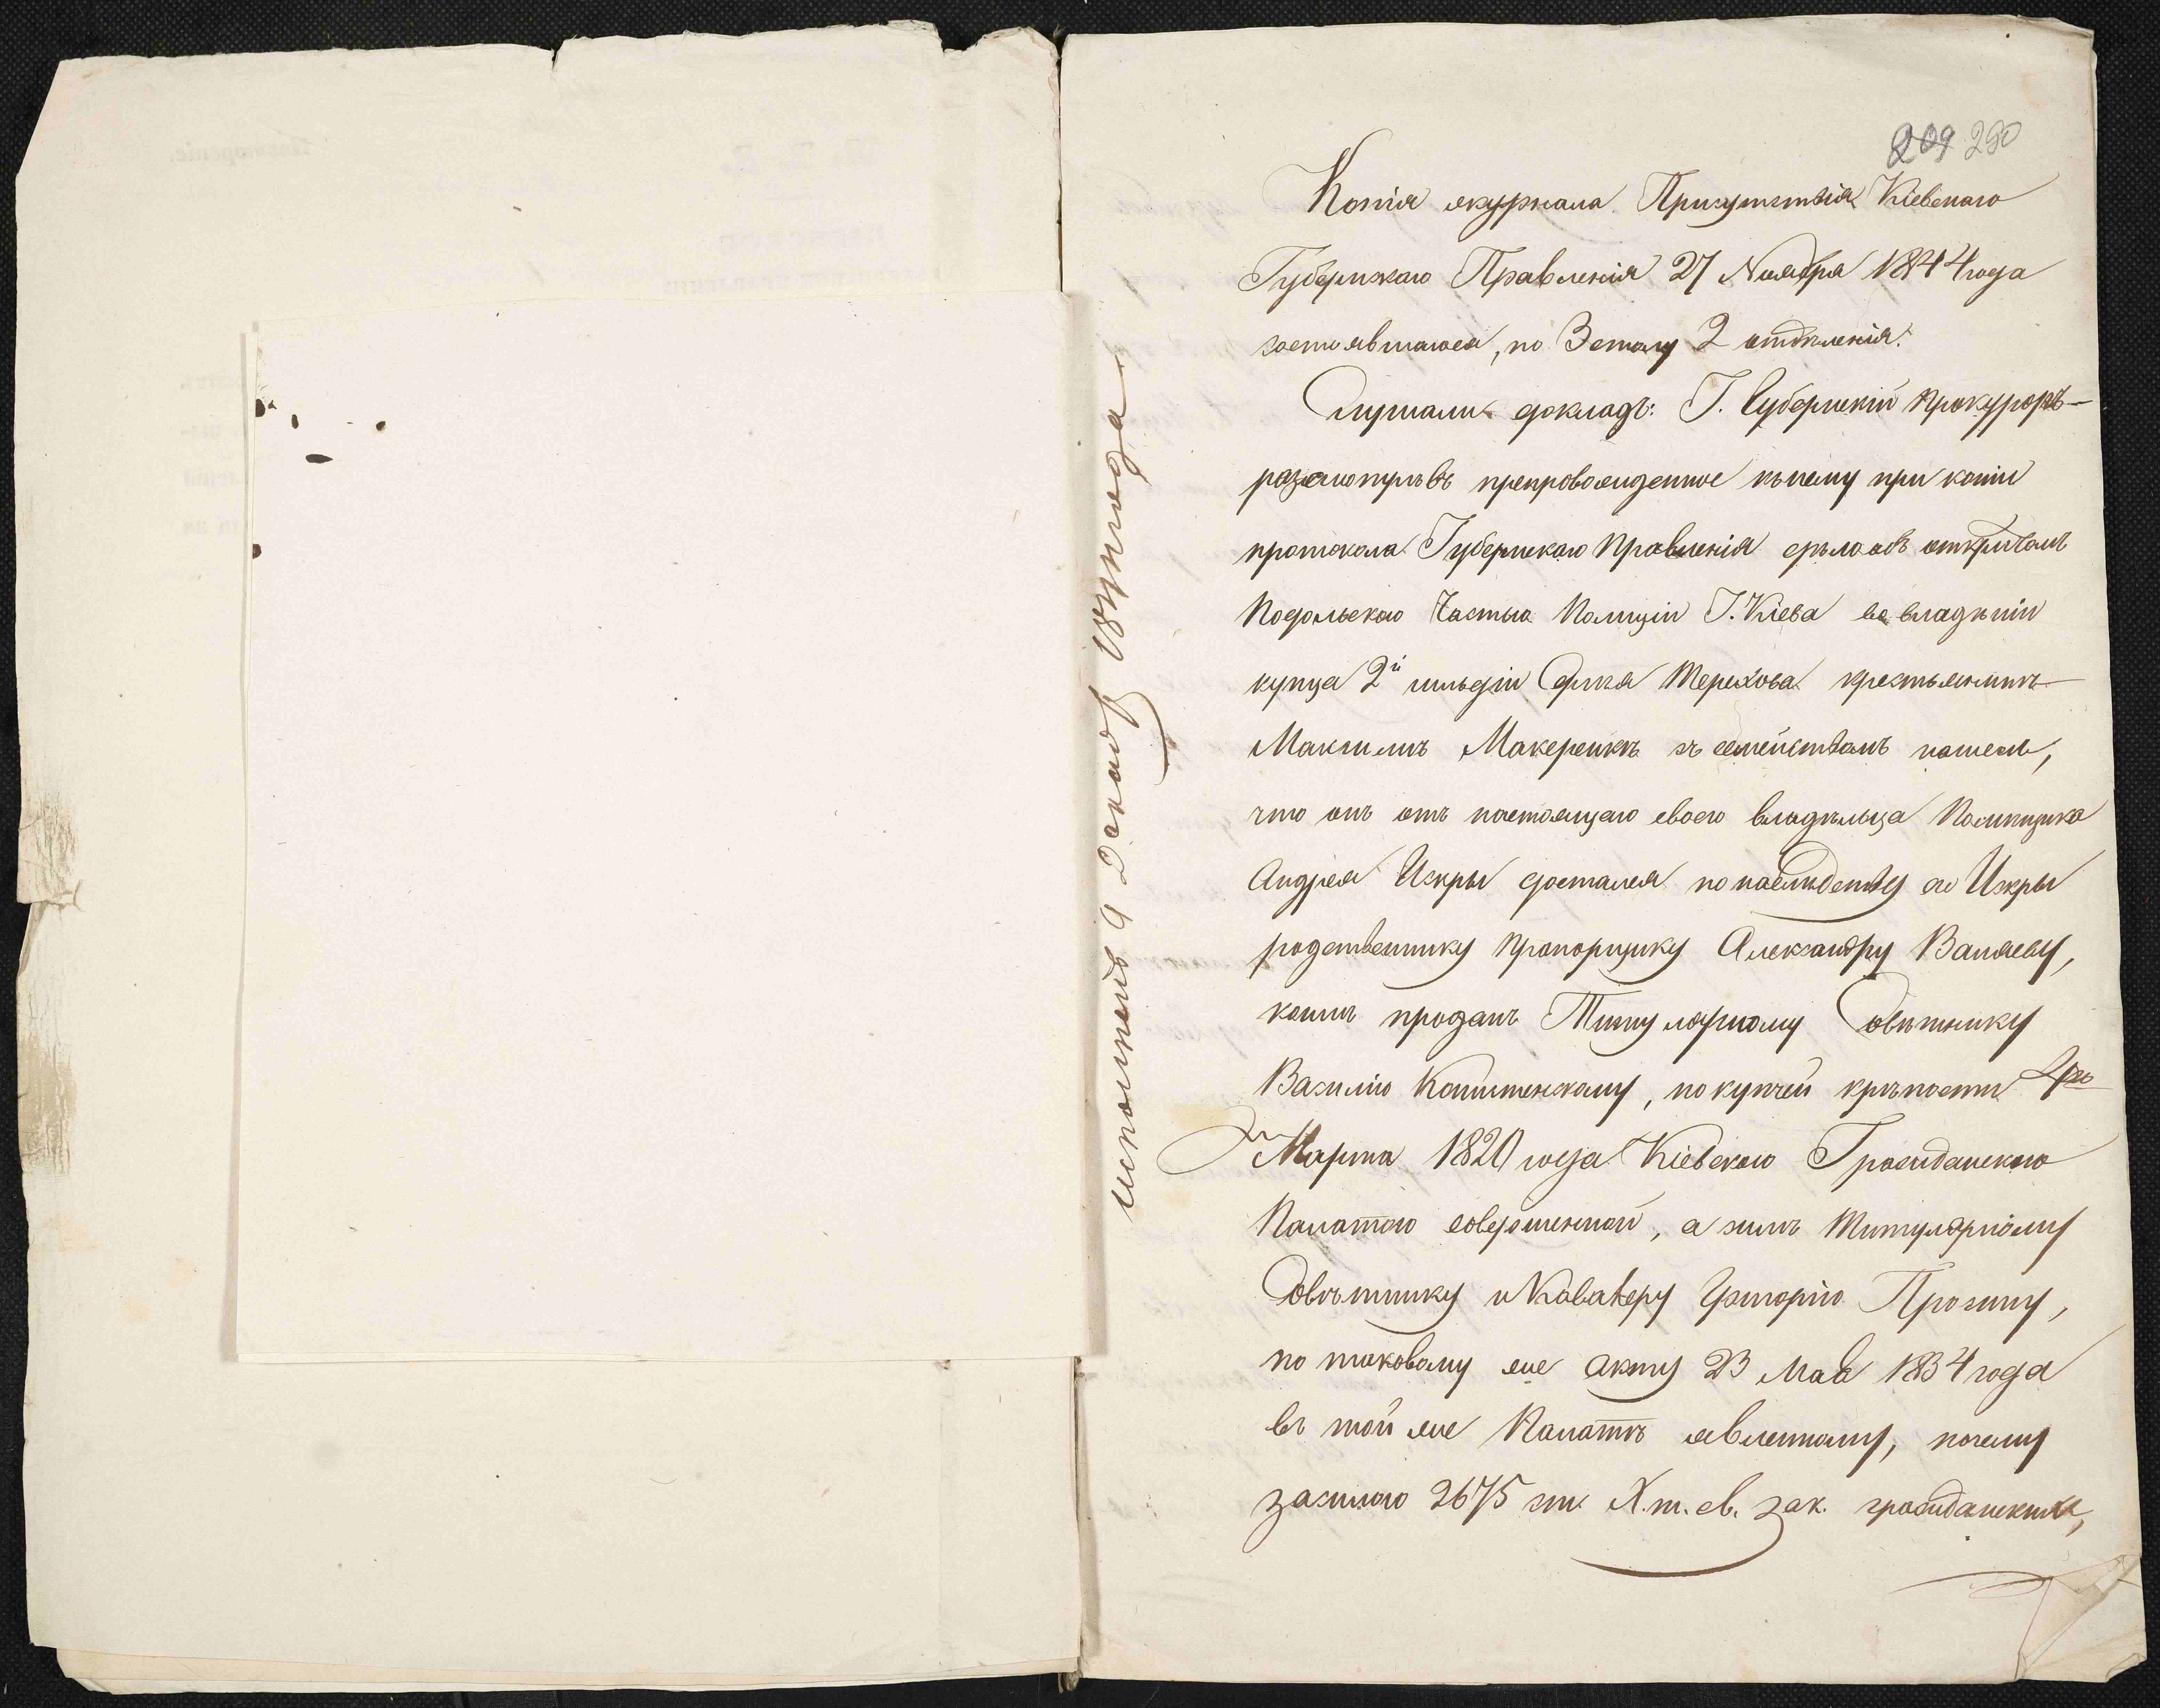 209 290
Копія журнала Присутствія Кіевскаго
Губернскаго Правленія 27 Ноября 1844 года
состоявшагося, по 3 столу 2 отдѣленія.
Слушали докладъ: Г. Губернскій Прокуроръ
разсмотрѣвъ препровожденное къ нему при копіи
протокола Губернскаго Правленія дѣло объ открытомъ
Подольскою Частью Полиціи Г. Кіева во владѣніи
купца 2й гильдіи Терехова крестьянинѣ
Максимѣ Макеренкѣ съ семействомъ нашелъ,
что онъ отъ настоящаго своего владѣльца Помѣщика
Андрея Искры достался по наслѣдству его Искры
родственнику Прапорщику Александру
коимъ проданъ Титулярному Совѣтнику
Василію по купчей крѣпости
Марта 1820 года Кіевскою Гражданскою
Палатою совершенной, а симъ Титулярному
Совѣтнику и Кавалеру Григорію Прозину,
по таковому же акту 23 Мая 1834 года
въ той же Палатѣ явленному, почему
за силою 2675 ст. X. т. св. зак. гражданскихъ,
исполнено 9 Декабр 1844 года